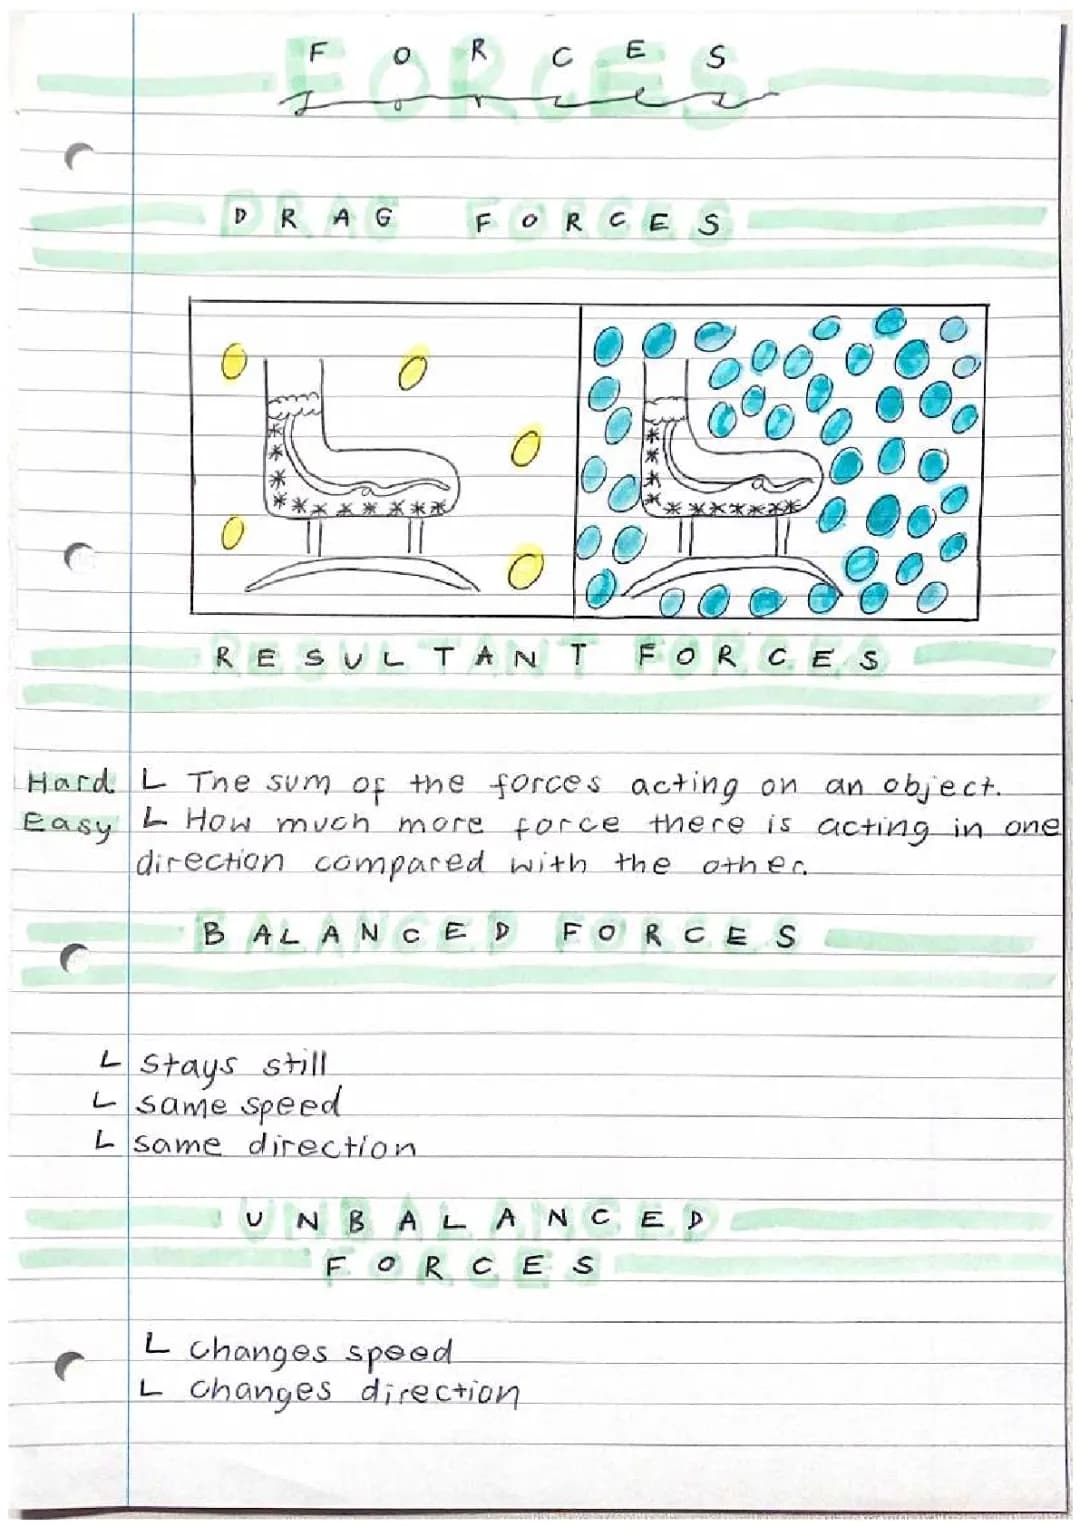 FORCES
forces
DRAG FORCES
RESULTANT FORCES
Hard L The sum of the forces acting on an object.
Easy L How much more force there is acting in one
direction compared with the other.
BALANCED FORCES
L stays still
L same speed
L same direction
UNBALANCED
FORCES
L changes speed
L changes direction